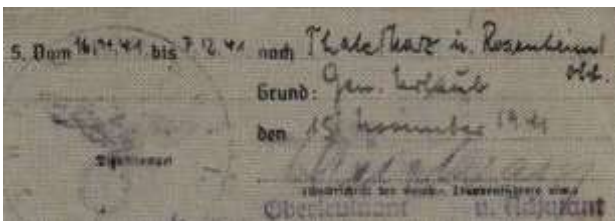 5. Vom 16.11.41. bis 7.12.41. nach Thale/Harz u. Rosenheim/
Obb.
Grund: Gen. Urlaub
den 15. November 1941
Dienststempel
Oberleutnant u. Adjutant